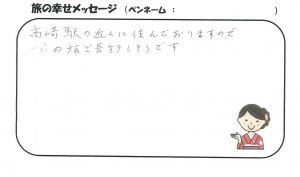 旅の幸せメッセージ（ペンネーム：　　　　　　）
高崎駅の近くに住んでおりますので
の旅で長生きしそうです